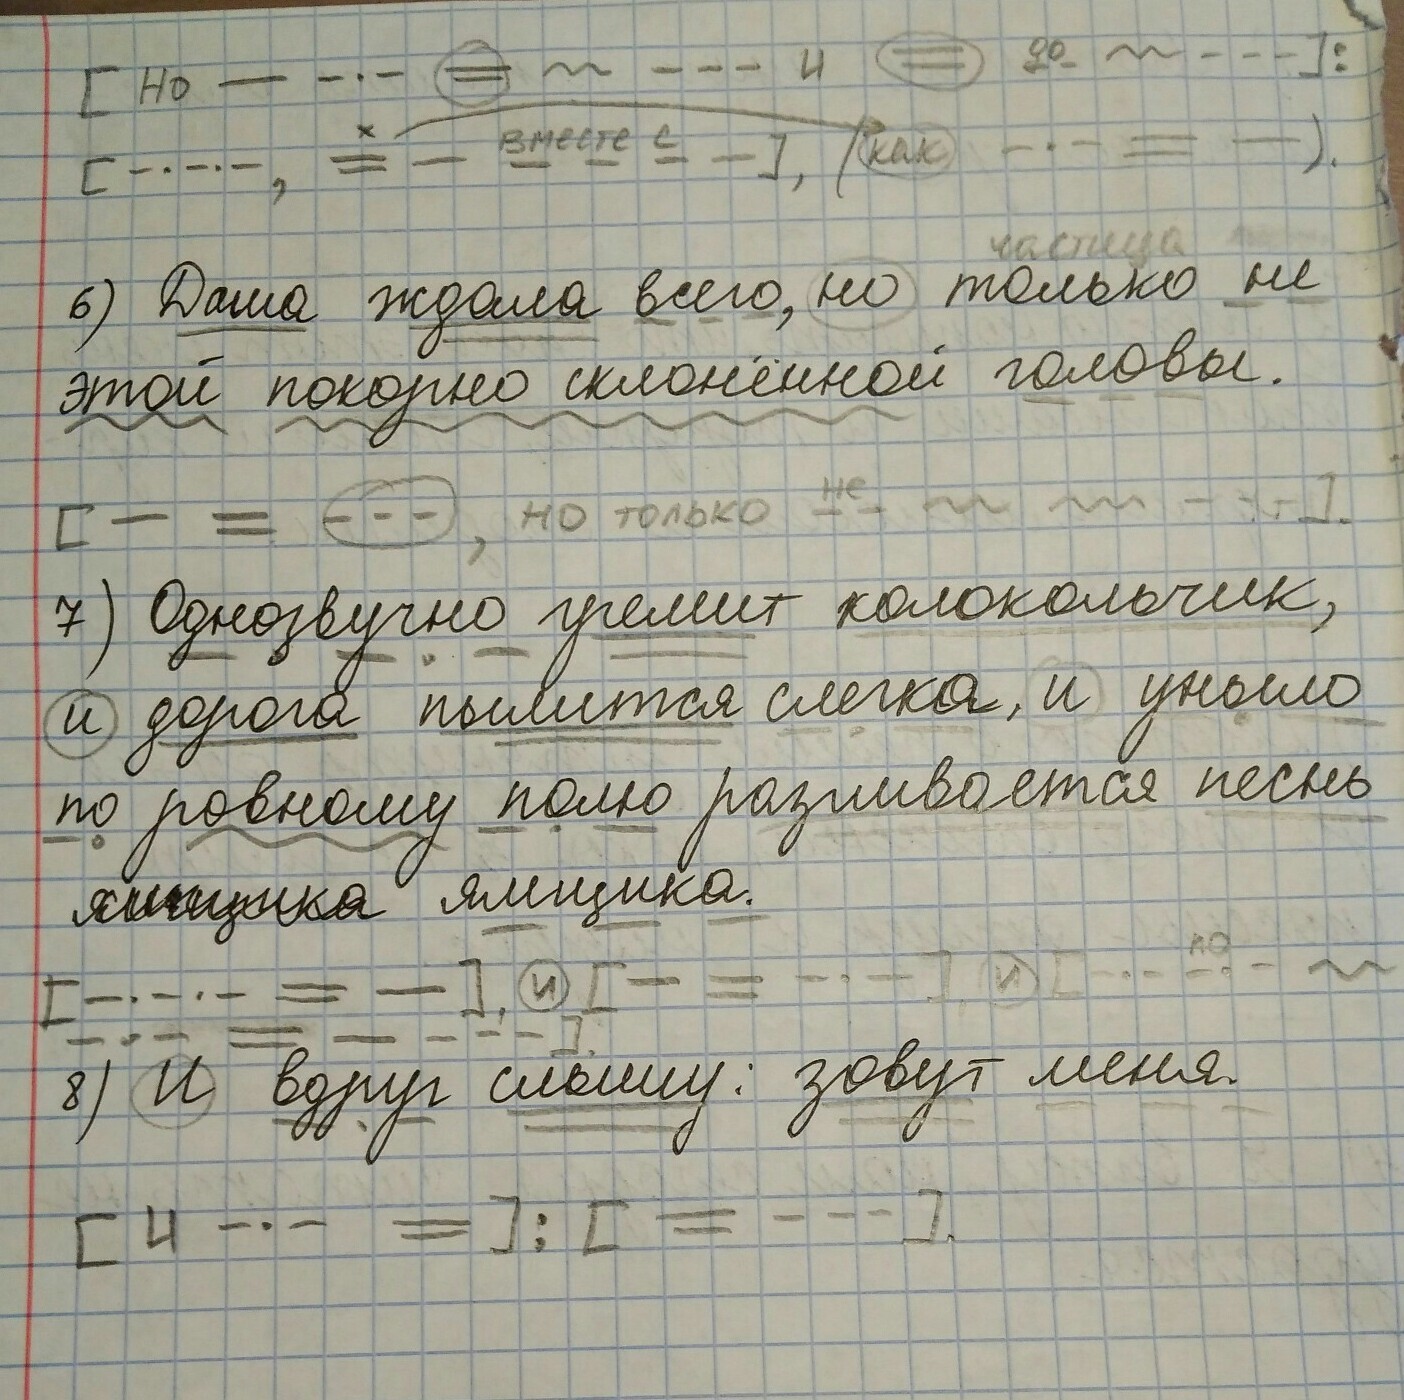 [ Но — -·- = ~ --- и = до ~ --- ]:
[ -·-·-, х = — вместе с ---- ], (как -·- = — ).
частица
6) Даша ждала всего, но только не
этой покорно склонённой головы.
[ — = ---, но только не ~ ~ --- ].
7) Однозвучно гремит колокольчик,
и дорога пылится слегка, и уныло
по ровному полю разливается песнь
ямщика ямщика.
[ -·-·- = — ], и [ — = -·- ], и [ -·- по -·- ~
-·- = — --- ].
8) И вдруг слышу: зовут меня.
[ И -·- = ]: [ = --- ].